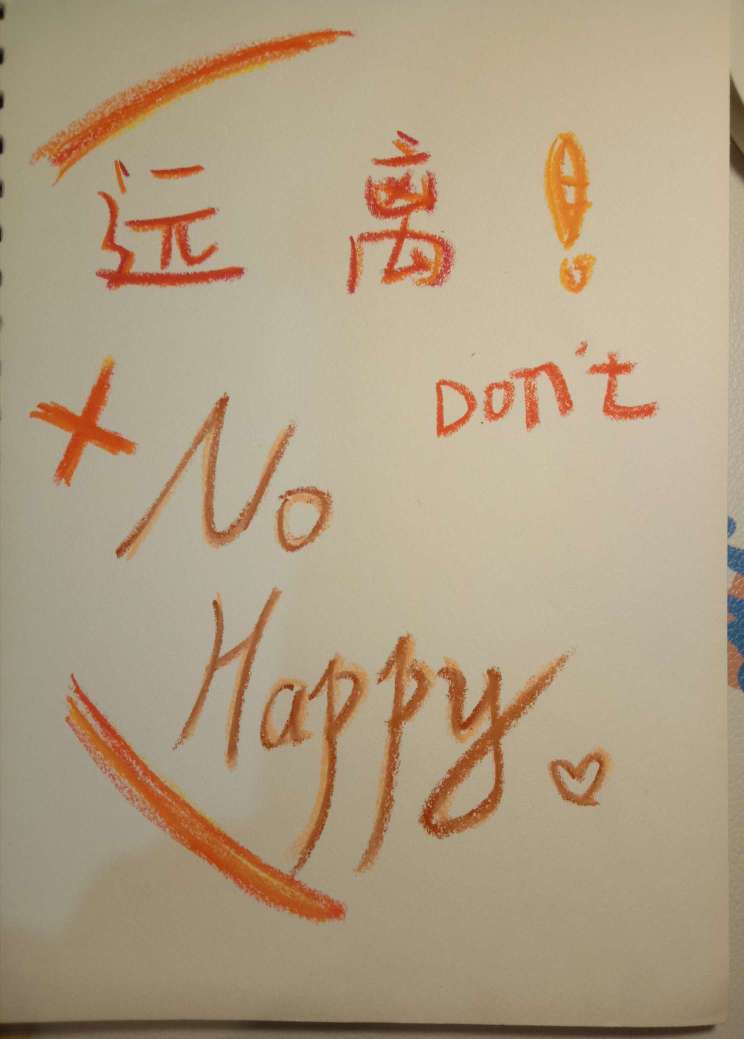 远离!
Don't
No
Happy